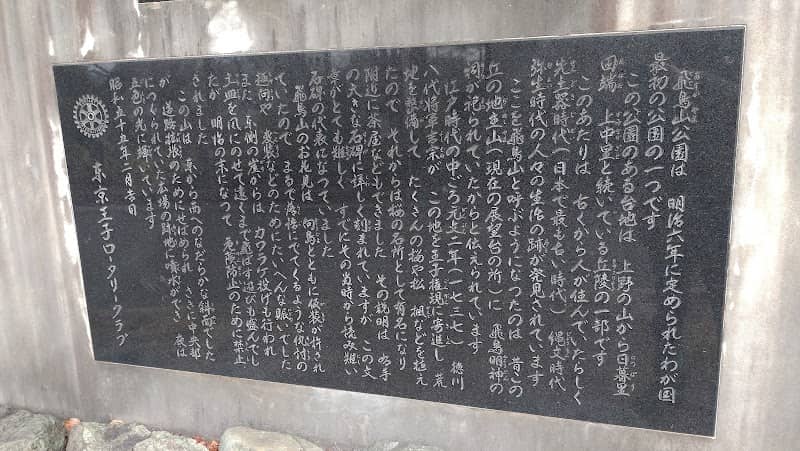 飛鳥山公園は 明治六年に定められたわが国
最初の公園の一つです
この公園のある台地は 上野の山から日暮里
田端 上中里と続いている丘陵の一部です
このあたりは 古くから人が住んでいたらしく
先土器時代(日本で最も古い時代) 縄文時代
弥生時代の人々の生活の跡が発見されています
ここを飛鳥山と呼ぶようになったのは 昔この
丘の地主山(現在の展望台の所)に 飛鳥明神の
祠が祀られていたからと伝えられています
江戸時代の中ごろ元文二年(一七三七) 徳川
八代将軍吉宗が この地を王子権現に寄進し 荒
地を整備して たくさんの桜や松 楓などを植え
たので それからは桜の名所として有名になり
附近に茶屋などもできました その説明は 右手
の大きな石碑に詳しく刻まれていますが この文
章がとても難しく すでにその当時から読み難い
石碑の代表になっていました
飛鳥山のお花見は 向島とともに仮装が許され
ていたので まるで落語にでてくるような仇討の
趣向や 変装などのためにたいへんな賑いでした
また 東側の崖からは カワラケ投げも行われ
土皿を風にのせて遠くまで飛ばす遊びも盛んでし
たが 明治の末になって 危険防止のため禁止
されました
この山は 東から西へのなだらかな斜面でした
が 道路拡張のためにせばめられ さらに中央部
につくられていた広場の跡地に噴水ができ 夜は
五色の光に輝いています
昭和五十五年二月吉日
東京王子ロータリークラブ